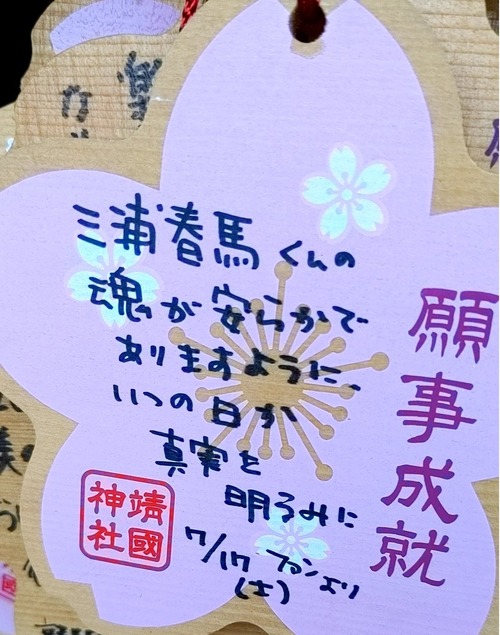 三浦春馬くんの
魂が安らかで
ありますように、
いつの日か
真実を
明るみに
7/17 ファンより
(土)
願事成就
靖國
神社